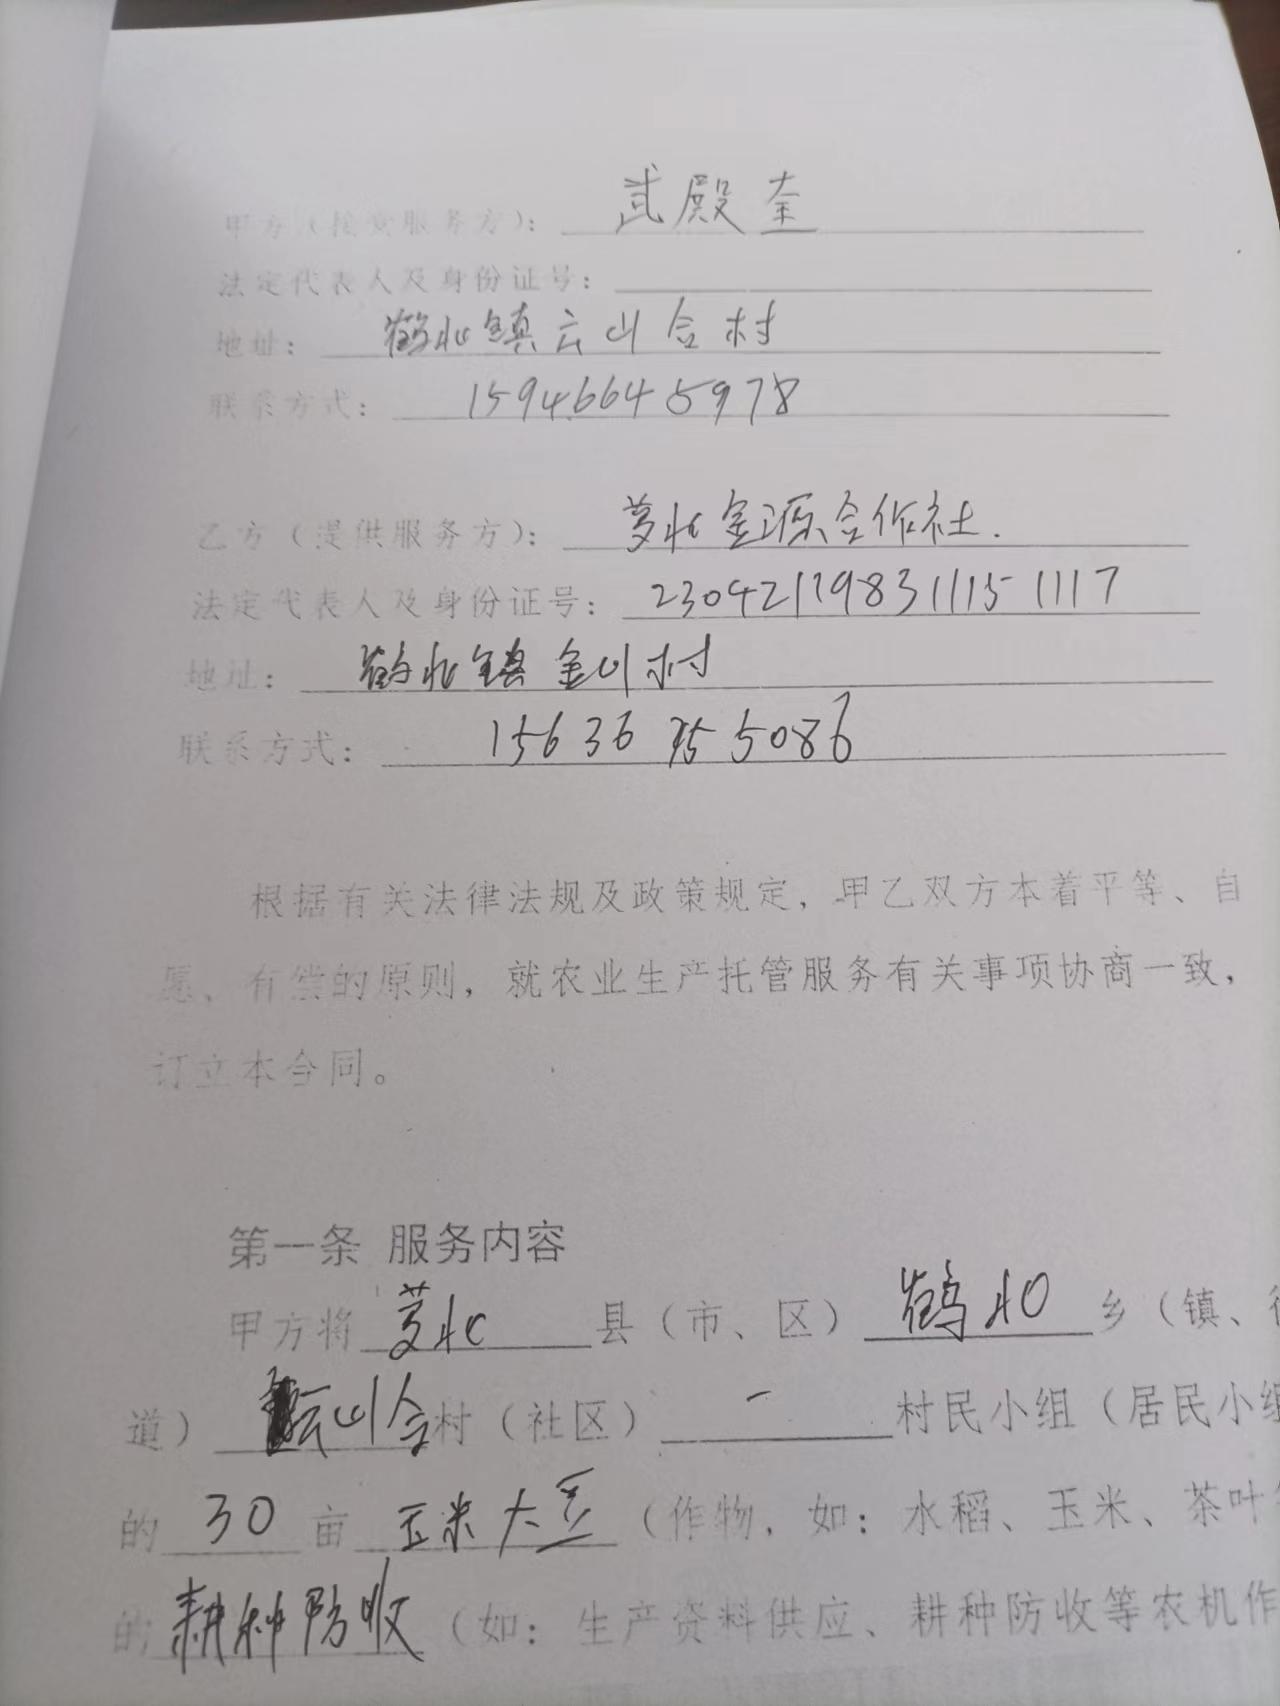 甲方（接受服务方）：武殿奎
法定代表人及身份证号：
地址：鹤北镇云山合村
联系方式：15946645978
乙方（提供服务方）：萝北金源合作社.
法定代表人及身份证号：230421198311151117
地址：鹤北镇金山村
联系方式：15636755086
根据有关法律法规及政策规定，甲乙双方本着平等、自
愿、有偿的原则，就农业生产托管服务有关事项协商一致，
订立本合同。
第一条 服务内容
甲方将萝北县（市、区）鹤北乡（镇、街
道）云山合村（社区）一村民小组（居民小组
的30亩玉米大豆（作物，如：水稻、玉米、茶叶
的耕种防收（如：生产资料供应、耕种防收等农机作